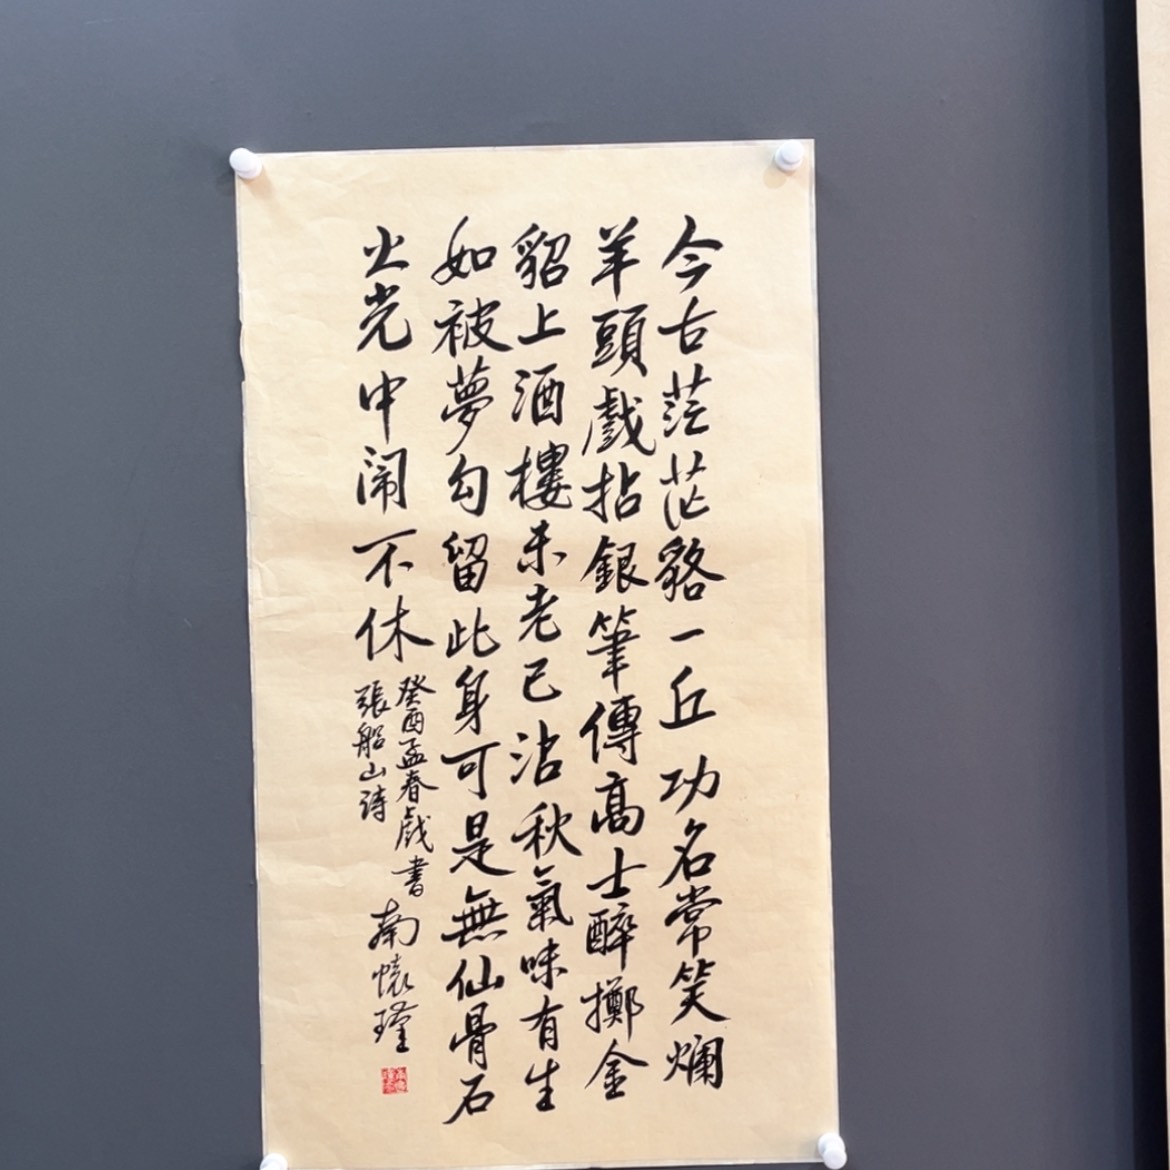 今古茫茫貉一丘功名常笑爛
羊頭戲拈銀筆傳高士醉擲金
貂上酒樓未老已沾秋氣味有生
如被夢勾留此身可是無仙骨石
火光中闹不休
癸酉孟春戲書
張船山詩
南懷瑾